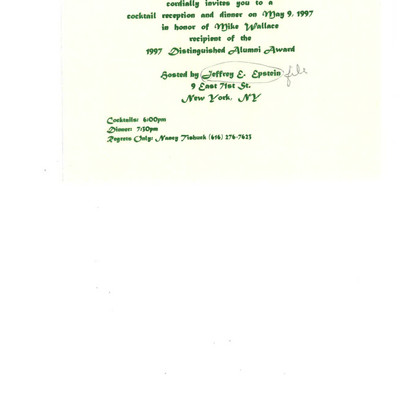 cordially invites you to a
cocktail reception and dinner on May 9, 1997
in honor of Mike Wallace
recipient of the
1997 Distinguished Alumni Award
Hosted by Jeffrey E. Epstein file
9 East 71st St.
New York, NY
Cocktails: 6:00pm
Dinner: 7:30pm
Regrets Only: Nancy (616) 276-7623